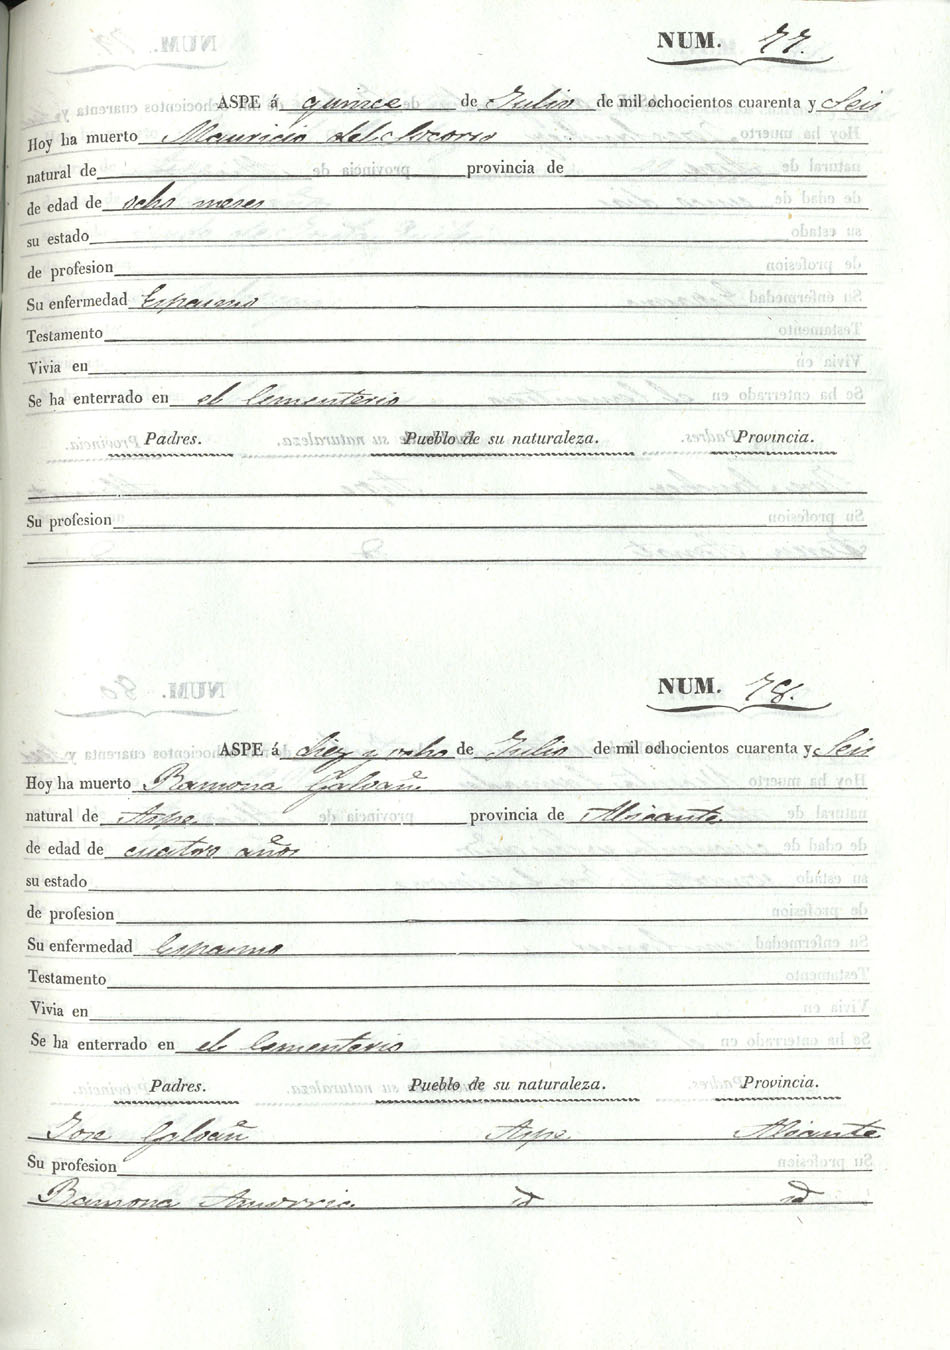 NUM. 77.
ASPE á quince de Julio de mil ochocientos cuarenta y Seis
Hoy ha muerto Mauricio del Socorro
natural de provincia de
de edad de ocho meses
su estado
de profesion
Su enfermedad Espasmo
Testamento
Vivia en
Se ha enterrado en el Cementerio
Padres. Pueblo de su naturaleza. Provincia.
Su profesion
NUM. 78.
ASPE á diez y ocho de Julio de mil ochocientos cuarenta y Seis
Hoy ha muerto Ramona Galvañ
natural de Aspe provincia de Alicante
de edad de cuatro años
su estado
de profesion
Su enfermedad Espasmo
Testamento
Vivia en
Se ha enterrado en el Cementerio
Padres. Pueblo de su naturaleza. Provincia.
Jose Galvañ Aspe Alicante
Su profesion
Ramona id id